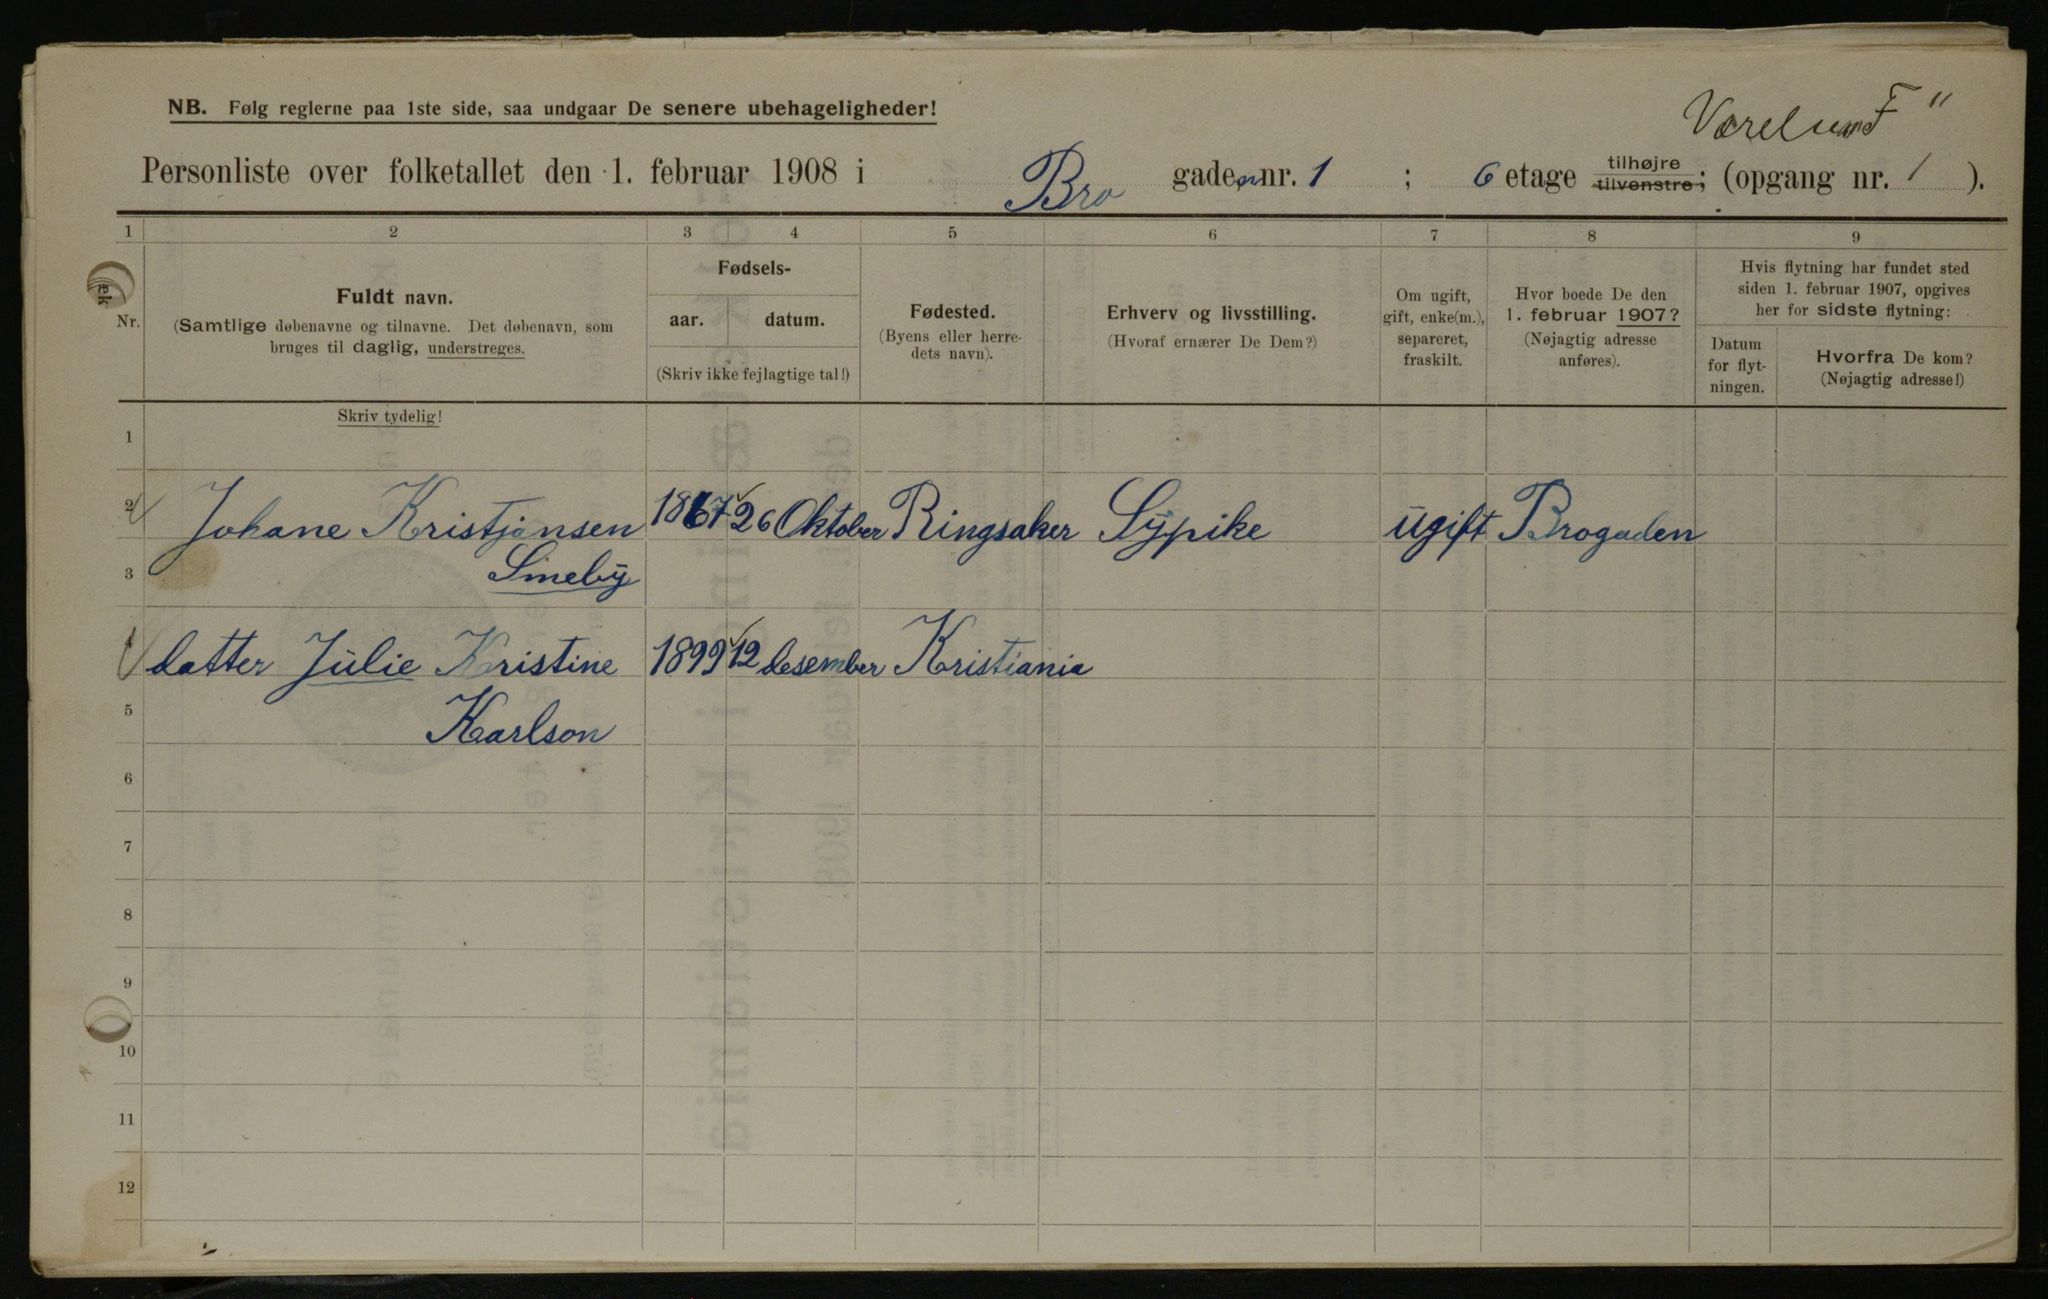 NB. Følg reglerne paa 1ste side, saa undgaar De senere ubehageligheder!
Værelse F"
Personliste over folketallet den 1. februar 1908 i Bro gaden nr. 1 ; 6 etage tilhøjre tilvenstre; (opgang nr. 1 ).
1 2 3 4 5 6 7 8 9
Nr.
Fuldt navn.
(Samtlige døbenavne og tilnavne. Det døbenavn, som
bruges til daglig, understreges.
Fødsels-
aar. datum.
(Skriv ikke fejlagtige tal!)
Fødested.
(Byens eller herre-
dets navn).
Erhverv og livsstilling.
(Hvoraf ernærer De Dem?)
Om ugift,
gift, enke(m.),
separeret,
fraskilt.
Hvor boede De den
1. februar 1907?
(Nøjagtig adresse
anføres).
Hvis flytning har fundet sted
siden 1. februar 1907, opgives
her for sidste flytning:
Datum
for flyt-
ningen.
Hvorfra De kom?
(Nøjagtig adresse!)
Skriv tydelig!
1
2 Johane Kristjansen 1867 26 Oktober Ringsaker Sypike ugift Brogaden
3 Smeby
4 datter Julie Kristine 1899 12 desember Kristiania
5 Karlson
6
7
8
9
10
11
12